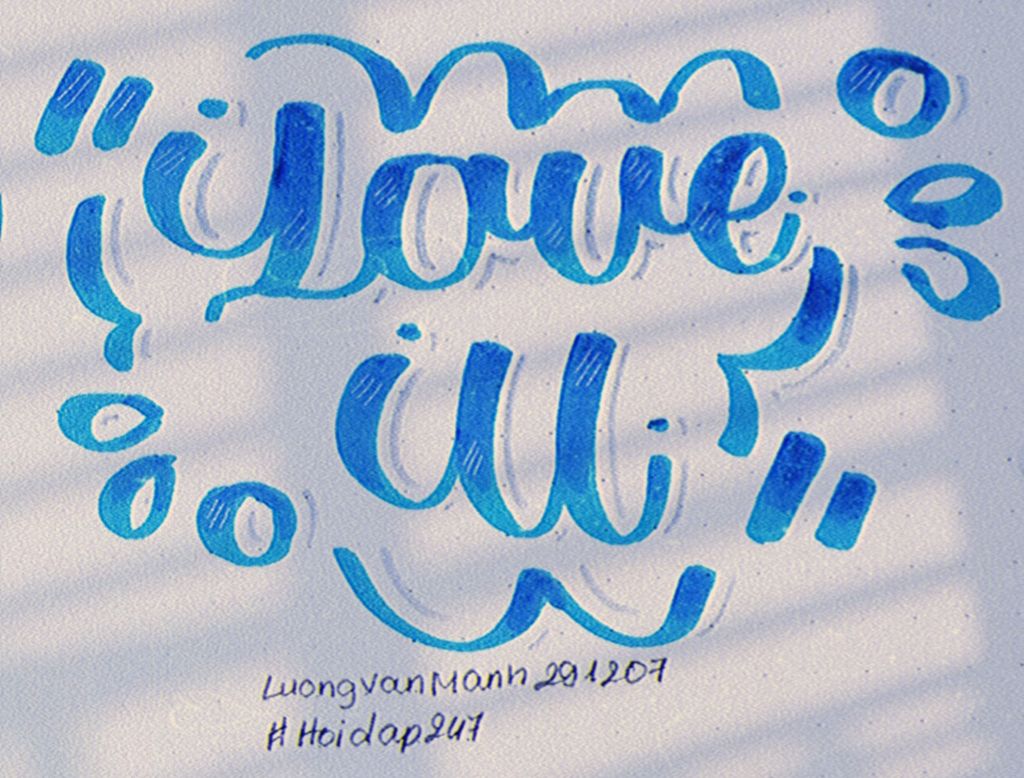 "Love
U"
LuongVanManh291207
# Hoidap247